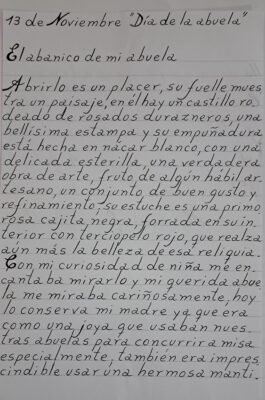 13 de Noviembre "Día de la abuela"
El abanico de mi abuela
Abrirlo es un placer, su fuelle mues
tra un paisaje, en él hay un castillo ro,
deado de rosados durazneros, una
bellísima estampa y su empuñadura
está hecha en nácar blanco, con una
delicada esterilla, una verdadera
obra de arte, fruto de algún hábil ar,
tesano, un conjunto de buen gusto y
refinamiento, su estuche es una primo
rosa cajita, negra, forrada en su in
terior con terciopelo rojo, que realza
aún más la belleza de esa reliquia.
Con mi curiosidad de niña me en,
cantaba mirarlo y mi querida abue
la me miraba cariñosamente, hoy
lo conserva mi madre ya que era
como una joya que usaban nues,
tras abuelas para concurrir a misa
especialmente, también era impres
cindible usar una hermosa manti.